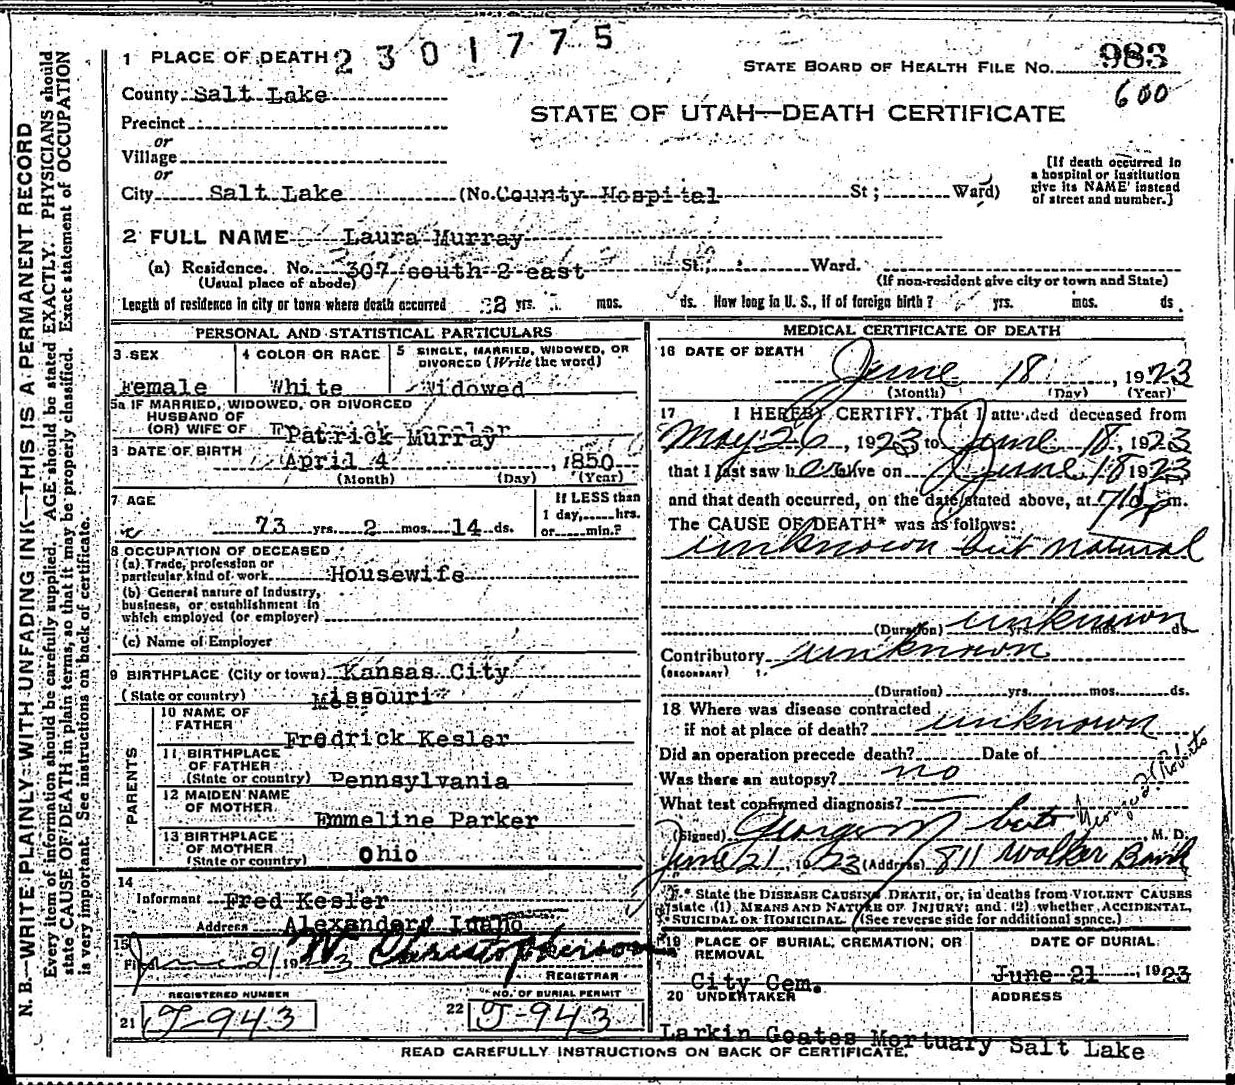 N. B.—WRITE PLAINLY WITH UNFADING INK—THIS IS A PERMANENT RECORD
Every item of information should be carefully supplied. AGE should be stated EXACTLY. PHYSICIANS should
state CAUSE OF DEATH in plain terms, so that it may be properly classified. Exact statement of OCCUPATION
is very important. See instructions on back of certificate.
1 PLACE OF DEATH 2301775
STATE BOARD OF HEALTH FILE NO. 983
600
County Salt Lake
STATE OF UTAH—DEATH CERTIFICATE
Precinct
or
Village
or
City Salt Lake (No. County Hospital St; Ward)
[If death occurred in
a hospital or institution
give its NAME instead
of street and number.]
2 FULL NAME Laura Murray
(a) Residence. No. 307 south 2 east St., Ward.
(Usual place of abode) (If non-resident give city or town and State)
Length of residence in city or town where death occurred yrs. mos. ds. How long in U. S., if of foreign birth? yrs. mos. ds
PERSONAL AND STATISTICAL PARTICULARS
3 SEX 4 COLOR OR RACE 5 SINGLE, MARRIED, WIDOWED, OR
DIVORCED (Write the word)
Female White Widowed
5a IF MARRIED, WIDOWED, OR DIVORCED
HUSBAND OF
(OR) WIFE OF Patrick Murray
6 DATE OF BIRTH April 4, 1850
(Month) (Day) (Year)
7 AGE If LESS than
1 day, hrs.
73 yrs. 2 mos. 14 ds. or min.?
8 OCCUPATION OF DECEASED
(a) Trade, profession or
particular kind of work Housewife
(b) General nature of Industry,
business, or establishment in
which employed (or employer)
(c) Name of Employer
9 BIRTHPLACE (City or town) Kansas City
(State or country) Missouri
PARENTS
10 NAME OF
FATHER Fredrick Kesler
11 BIRTHPLACE
OF FATHER
(State or country) Pennsylvania
12 MAIDEN NAME
OF MOTHER Emmeline Parker
13 BIRTHPLACE
OF MOTHER
(State or country) Ohio
14
Informant Fred Kesler
Address Alexander, Idaho
15
Filed June 21 1923 W Christopherson
REGISTRAR
REGISTERED NUMBER NO. OF BURIAL PERMIT
21 J-943 22 J-943
MEDICAL CERTIFICATE OF DEATH
16 DATE OF DEATH
June 18, 1923
(Month) (Day) (Year)
17 I HEREBY CERTIFY, That I attended deceased from
May 26, 1923 to June 18, 1923
that I last saw her alive on June 18 1923
and that death occurred, on the date stated above, at m.
The CAUSE OF DEATH* was as follows:
unknown but natural
(Duration) unknown yrs. mos. ds
Contributory unknown
(SECONDARY)
(Duration) yrs. mos. ds.
18 Where was disease contracted
if not at place of death? unknown
Did an operation precede death? Date of
Was there an autopsy? no
What test confirmed diagnosis? —
(Signed) George M Roberts, M. D.
June 21 1923 (Address) 811 Walker Bank
* State the DISEASE CAUSING DEATH, or, in deaths from VIOLENT CAUSES
state (1) MEANS AND NATURE OF INJURY; and (2) whether ACCIDENTAL,
SUICIDAL OR HOMICIDAL. (See reverse side for additional space.)
19 PLACE OF BURIAL, CREMATION, OR
REMOVAL
City Cem.
DATE OF BURIAL
June 21, 1923
20 UNDERTAKER ADDRESS
Larkin Goates Mortuary Salt Lake
READ CAREFULLY INSTRUCTIONS ON BACK OF CERTIFICATE.